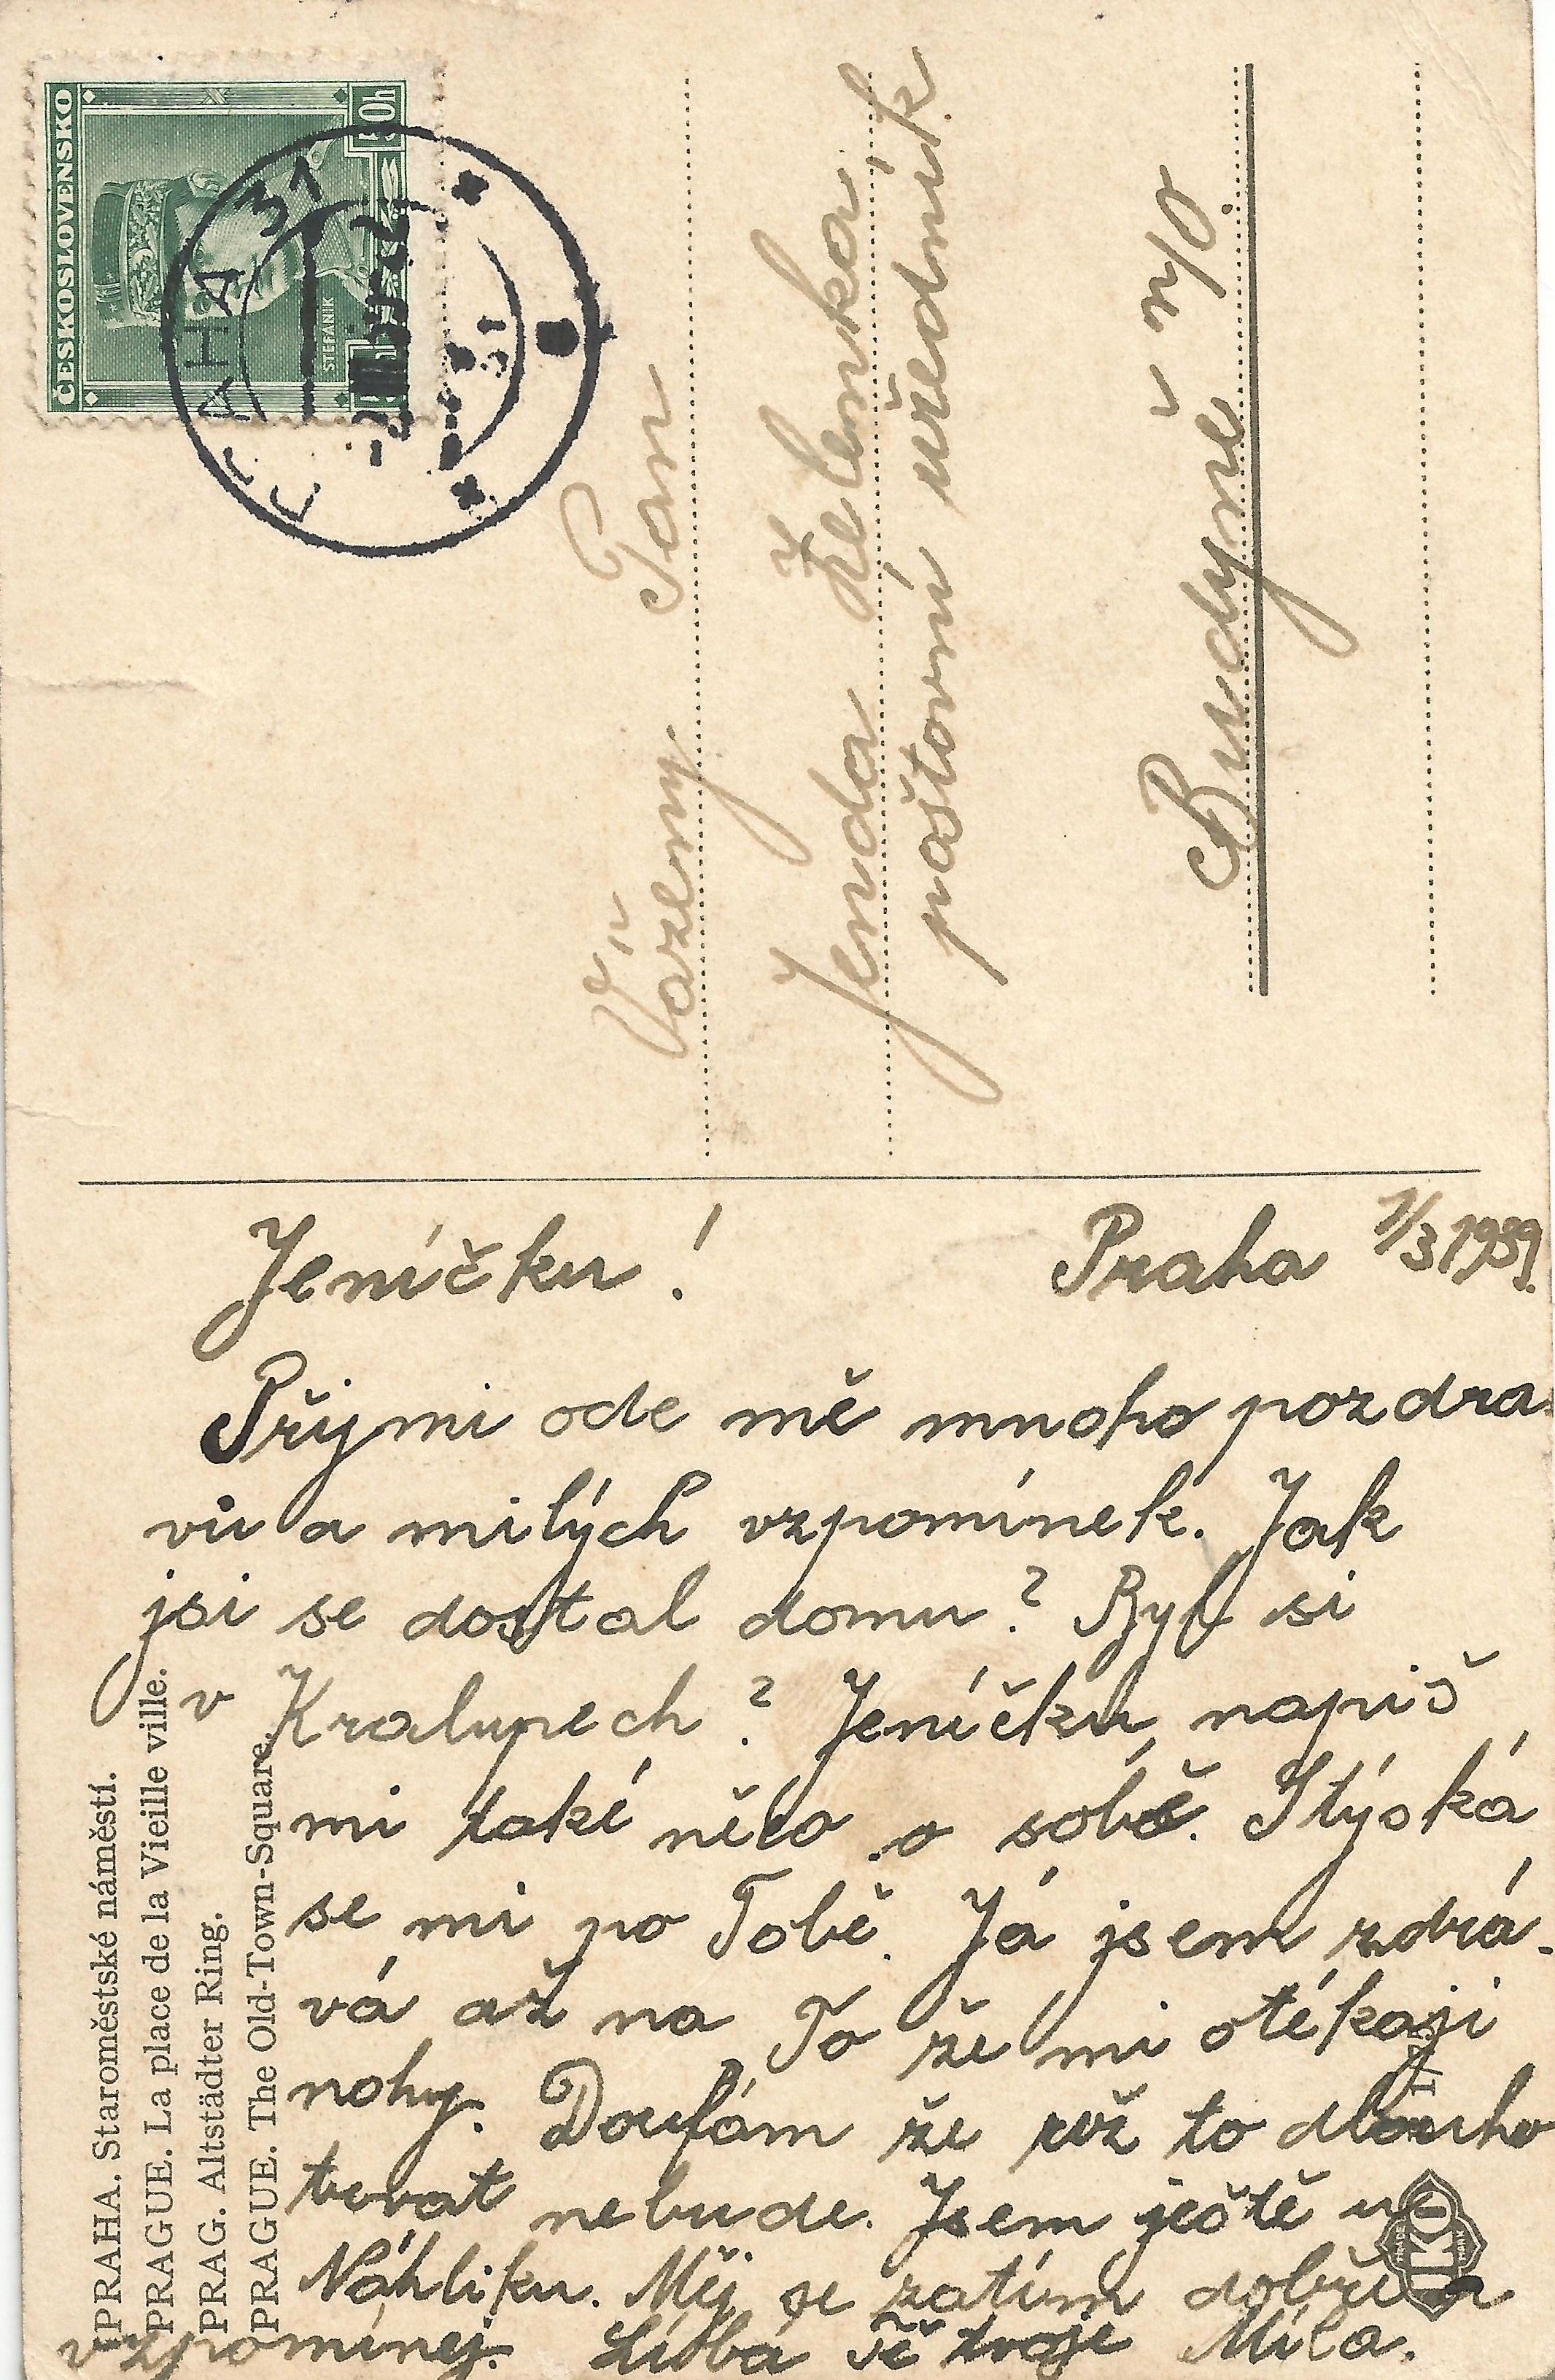 ČESKOSLOVENSKO
ŠTEFÁNIK
50h
PRAHA 31
Vážený Pan
Jenda Želenka,
poštovní úředník
Budyně n/O.
Jeníčku! Praha 1/3 1939.
Přijmi ode mě mnoho pozdra
vů a milých vzpomínek. Jak
jsi se dostal domu? Byl si
v Kralupech? Jeníčku, napiš
mi také něco o sobě. Stýská
se mi po Tobě. Já jsem zdrá-
vá až na To že mi otékaji
nohy. Doufám že už to dlouho
trvat nebude. Jsem ještě u
Náhliku. Měj se zatím dobře a
vzpomínej. Líbá Tě tvoje Míla.
PRAHA. Staroměstské náměstí.
PRAGUE. La place de la Vieille ville.
PRAG. Altstädter Ring.
PRAGUE. The Old-Town-Square.